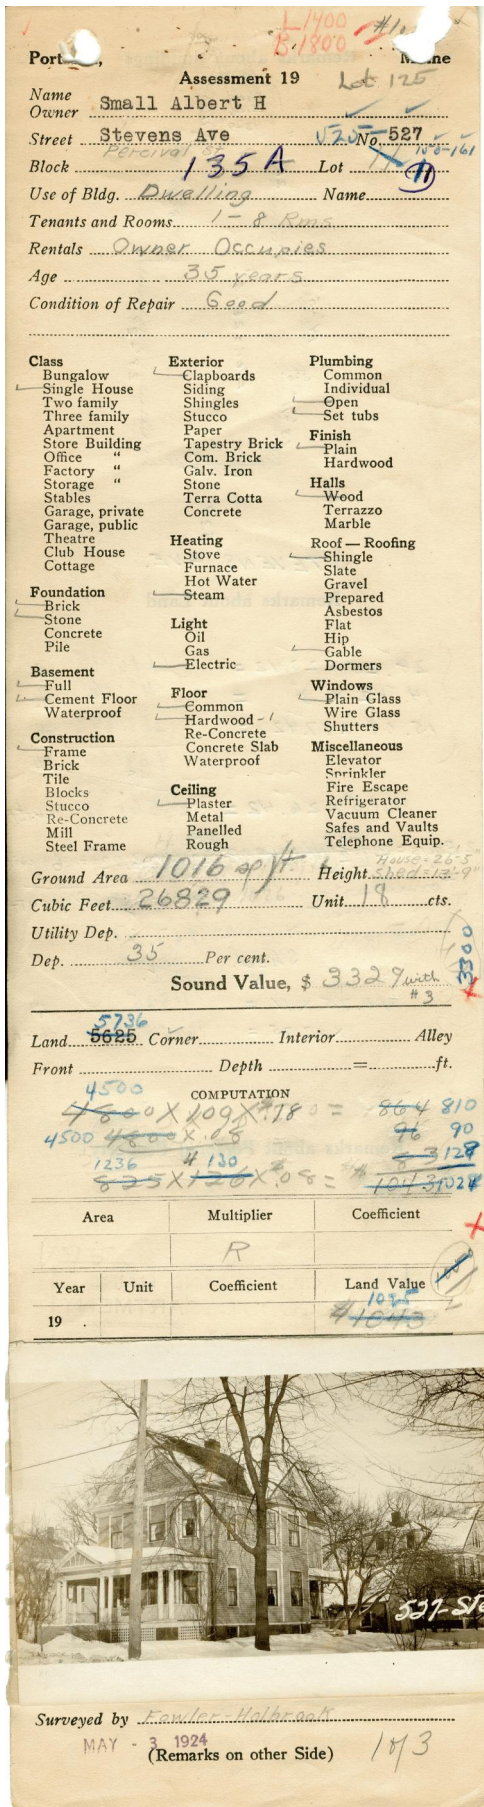 L 1400
B 1800
Maine
Assessment 19
Lot 125
Name
Owner Small Albert H
Street Stevens Ave 525 No. 527
Percival St 11 158-161
Block 135 A Lot 11
Use of Bldg. Dwelling Name
Tenants and Rooms 1 - 8 Rms
Rentals Owner Occupies
Age 35 years
Condition of Repair Good
Class
Bungalow
Single House
Two family
Three family
Apartment
Store Building
Office "
Factory "
Storage "
Stables
Garage, private
Garage, public
Theatre
Club House
Cottage
Foundation
Brick
Stone
Concrete
Pile
Basement
Full
Cement Floor
Waterproof
Construction
Frame
Brick
Tile
Blocks
Stucco
Re-Concrete
Mill
Steel Frame
Exterior
Clapboards
Siding
Shingles
Stucco
Paper
Tapestry Brick
Com. Brick
Galv. Iron
Stone
Terra Cotta
Concrete
Heating
Stove
Furnace
Hot Water
Steam
Light
Oil
Gas
Electric
Floor
Common
Hardwood - 1
Re-Concrete
Concrete Slab
Waterproof
Ceiling
Plaster
Metal
Panelled
Rough
Plumbing
Common
Individual
Open
Set tubs
Finish
Plain
Hardwood
Halls
Wood
Terrazzo
Marble
Roof — Roofing
Shingle
Slate
Gravel
Prepared
Asbestos
Flat
Hip
Gable
Dormers
Windows
Plain Glass
Wire Glass
Shutters
Miscellaneous
Elevator
Sprinkler
Fire Escape
Refrigerator
Vacuum Cleaner
Safes and Vaults
Telephone Equip.
House = 26'-5"
Ground Area 1016 sq ft Height Shed = 13'-9"
Cubic Feet 26829 Unit 18 cts.
Utility Dep.
Dep. 35 Per cent.
3300
Sound Value, $ 3329 with
#3
5736
Land 5625 Corner Interior Alley
Front Depth = ft.
4500 COMPUTATION
4800 X 109 X .18 = 864 810
4500 4800 X .08 96 90
1236 130 83 128
825 X 126 X .08 = 1043 1028
Area Multiplier Coefficient
R
Year Unit Coefficient Land Value
1025
19 . 1043
527-Ste
Surveyed by Fowler-Holbrook
MAY - 3 1924
(Remarks on other Side) 1 of 3